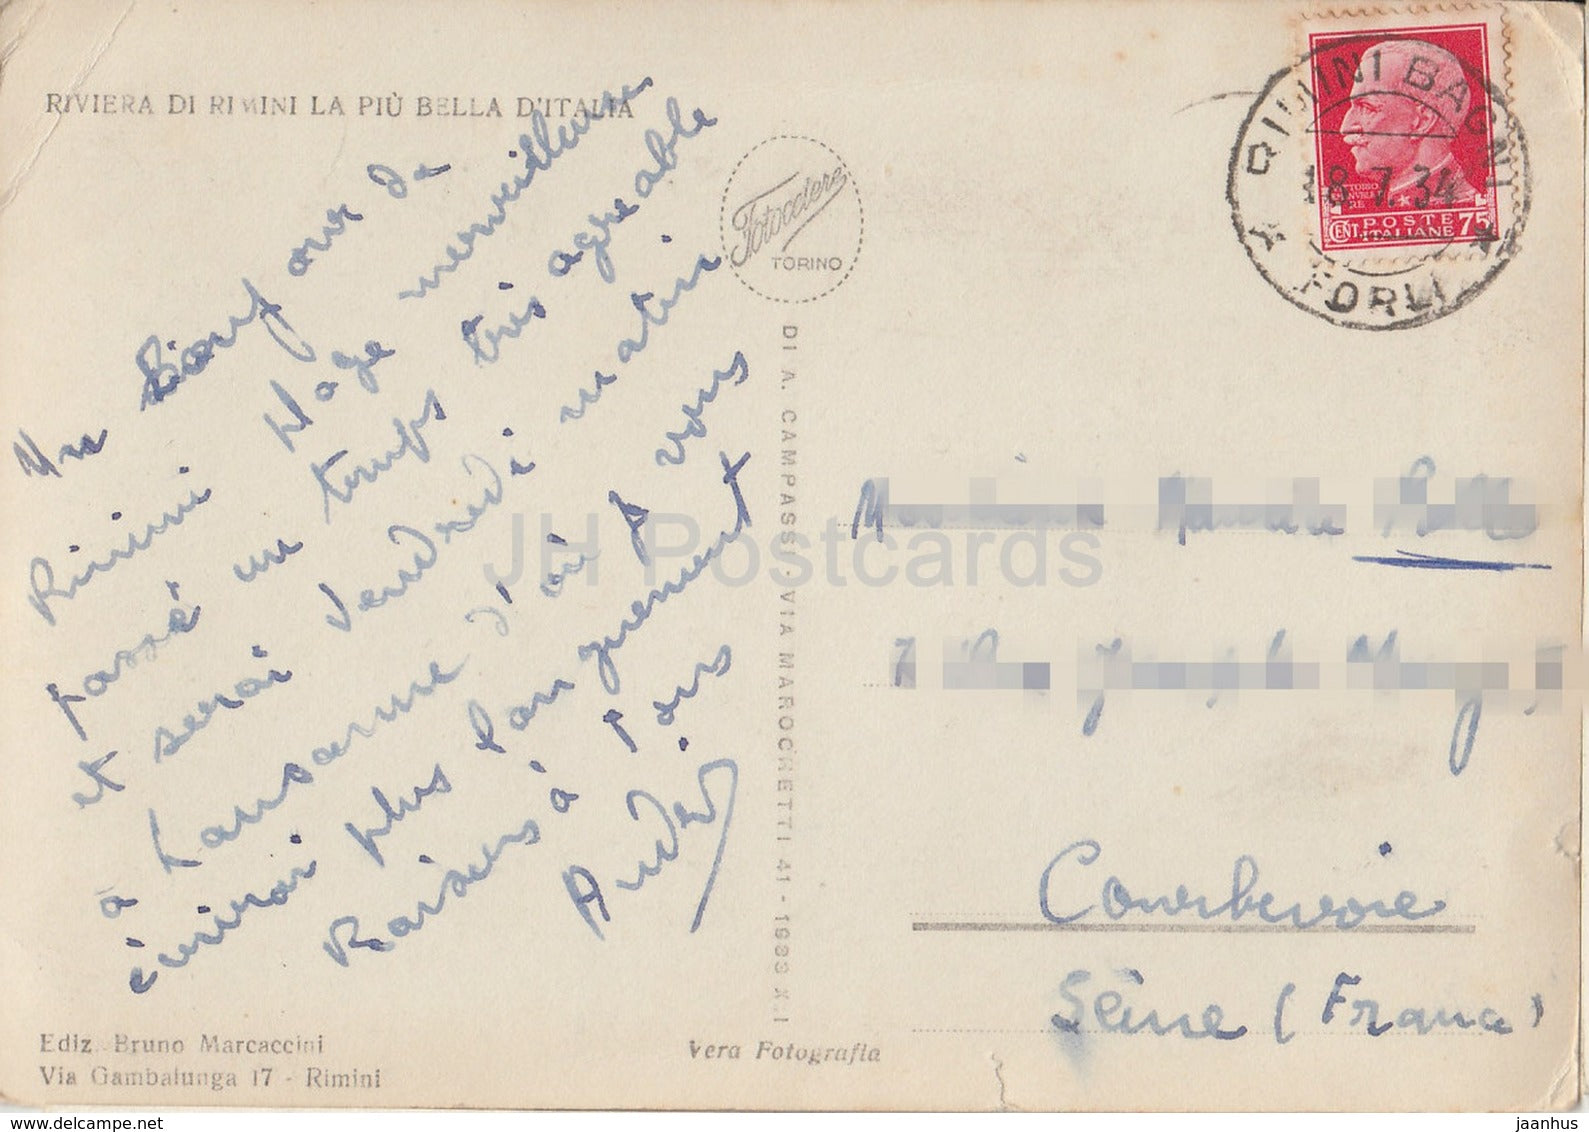 RIVIERA DI RIMINI LA PIÙ BELLA D'ITALIA
Un bonjour de
Rimini plage merveilleuse
passé un temps très agréable
et serai vendredi matin
à Lausanne d'où je vous
écrirai plus longuement
Baisers à tous
André
Ediz. Bruno Marcaccini
Via Gambalunga 17 - Rimini
Vera Fotografia
Fotocelere
TORINO
DI A. CAMPASSI - VIA MAROCHETTI 41 - 1933 XI
RIMINI BAGNI
18.7.34
FORLI
VITTORIO
CENT POSTE ITALIANE 75
7
Courbevoie
Seine (France)
JH Postcards
www.delcampe.net
jaanhus